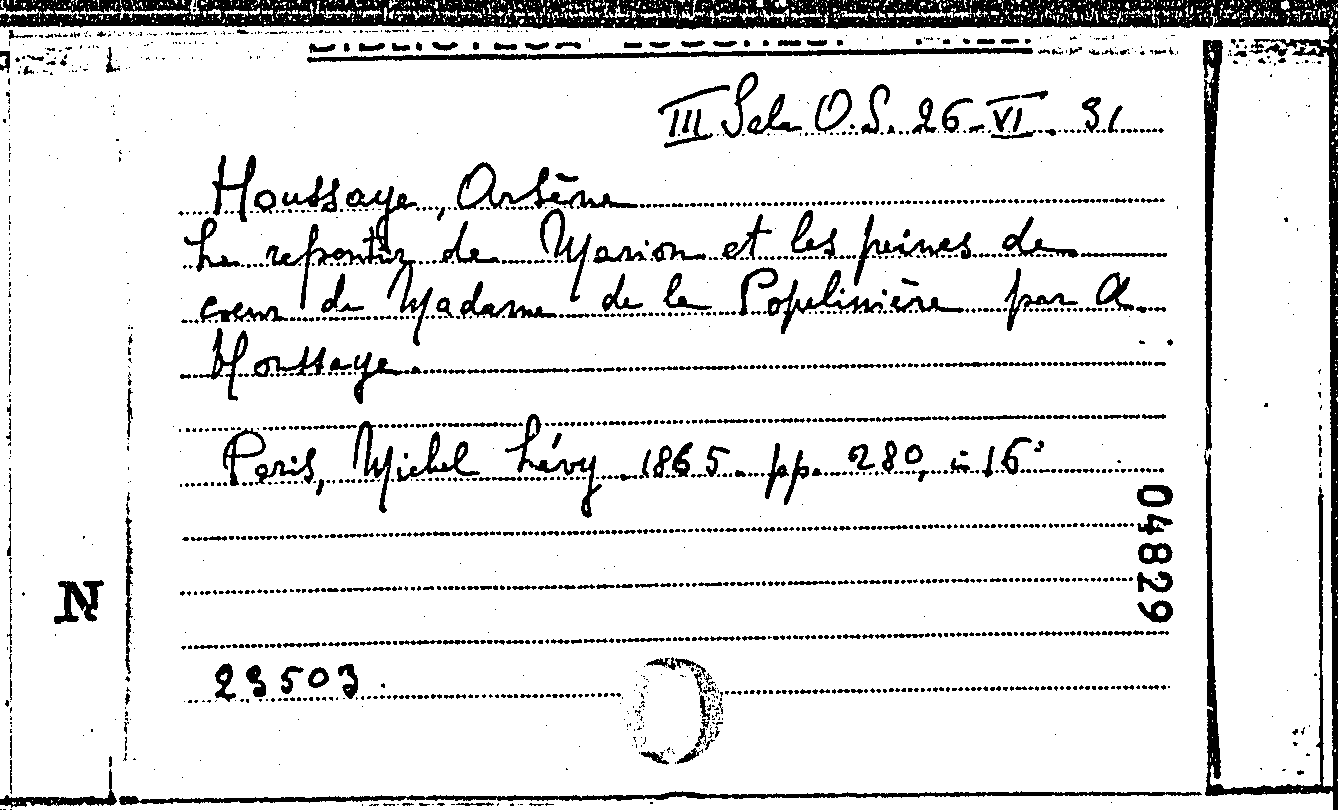 III Sala O.S. 26-VI. 31
Houssaye, Arsène
Le repentir de Marion et les peines de
coeur de Madame de la Popelinière par A.
Houssaye.
Paris, Michel Lévy. 1865. pp. 280, in 16°
04829
N
23503.